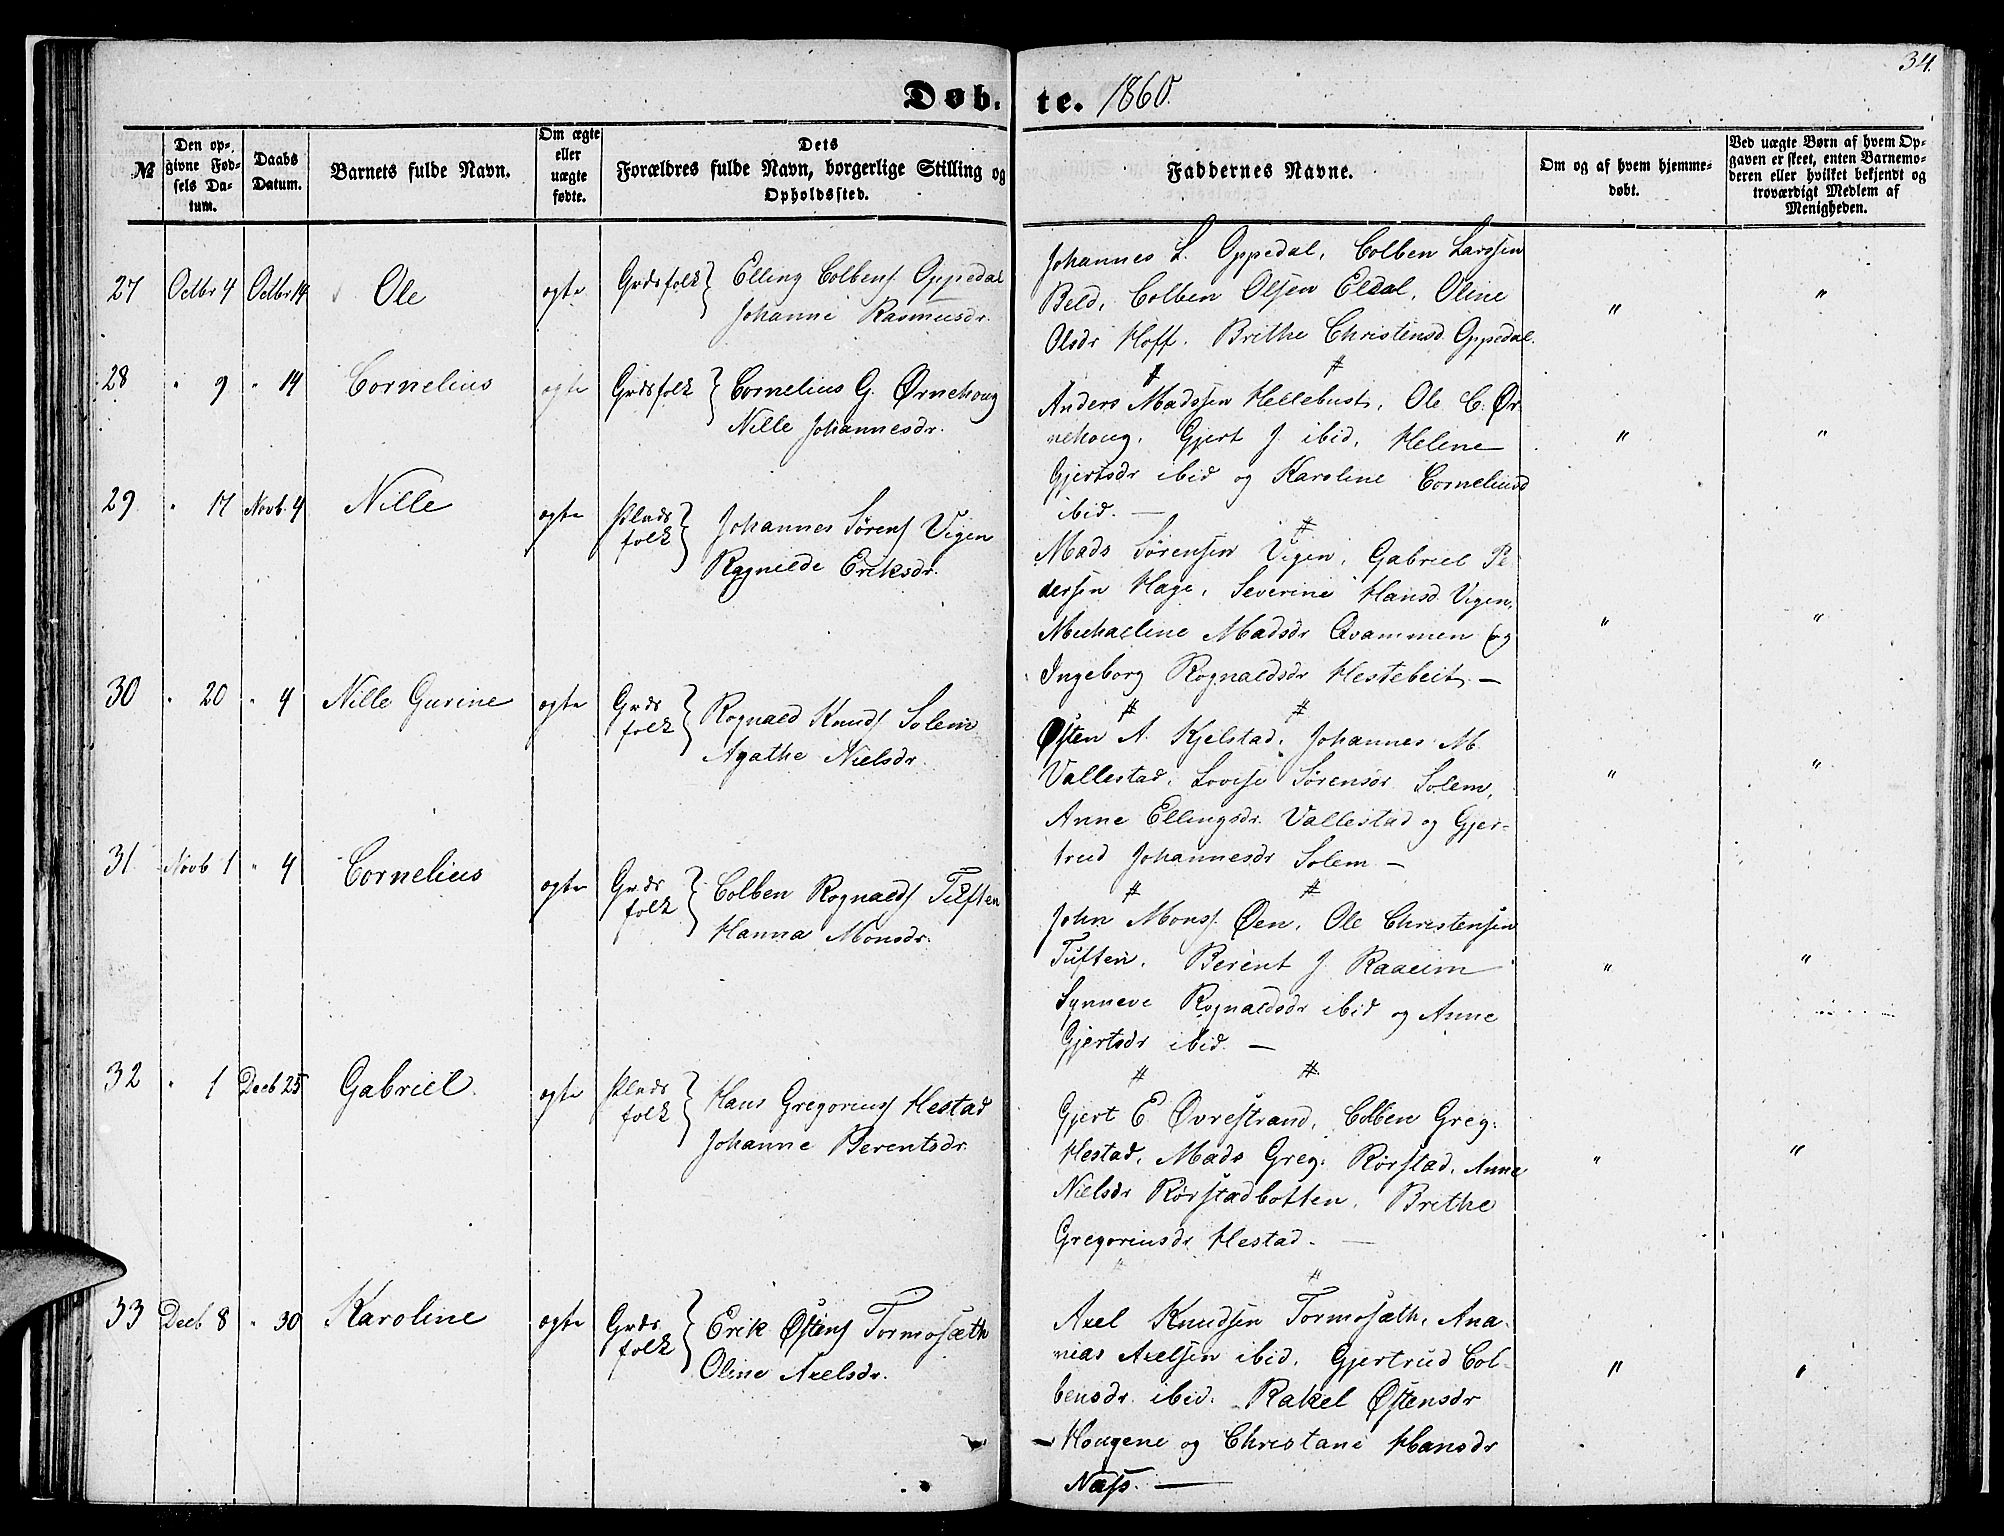 34.
Døb- te. 1860.
№
Den opgivne Fødsels Datum.
Daabs Datum.
Barnets fulde Navn.
Om ægte eller uægte fødte.
Dets Forældres fulde Navn, borgerlige Stilling og Opholdssted.
Faddernes Navne.
Om og af hvem hjemmedøbt.
Ved uægte Børn af hvem Opgaven er skeet, enten Barnemoderen eller hvilket bekjendt og troværdigt Medlem af Menigheden.
27 Octbr 4 Octbr 14 Ole ægte Grdsfolk } Elling Colbens. Oppedal
Johanne Rasmusdr.
Johannes L. Oppedal, Colben Larssen
Beld, Colben Olsen Eldal, Oline
Olsdr Hoff. Brithe Christensd. Oppedal.
" "
28 " 9 " 14 Cornelius ægte Grdsfolk } Cornelius G. Ørnehoug
Nille Johannesdr.
Anders Madssen Hellebust, Ole C. Ør
nehoug, Gjert J. ibid, Helene
Gjertsdr ibid og Karoline Corneliusd
ibid. —
" "
29 " 17 Novb. 4 Nille ægte Plads
folk } Johannes Sørens. Vigen
Ragnilde Eriksdr.
Mads Sørensen Vigen, Gabriel Pe
dersen Hage, Severine Hansd. Vigen,
Michaeline Madsdr Qvammen og
Ingeborg Rognaldsdr Hestebeit. —
" "
30 " 20 " 4 Nille Gurine ægte Grds
folk } Rognald Knuds. Solem
Agathe Nielsdr.
Østen A. Kjelstad, Johannes M.
Vallestad, Lovise Sørensdr Solem,
Anne Ellingsdr. Vallestad og Gjer-
trud Johannesdr Solem —
" "
31 Novb 1 " 4 Cornelius ægte Grds
folk } Colben Rognalds. Tuften
Hanna Monsdr.
John Mons. Øen, Ole Christensen
Tuften, Berent J. Raaeim
Synneve Rognaldsdr ibid og Anne
Gjertsdr ibid. —
" "
32 " 1 Decb 25 Gabriel. ægte Plads
folk } Hans Gregorius. Hestad
Johanne Berentsdr.
Gjert E Øvrestrand, Colben Greg:
Hestad, Mads Greg: Rørstad, Anne
Nielsdr Rørstadbotten, Brithe
Gregoriusdr Hestad. —
" "
33 Decb 8 " 30 Karoline ægte Grds
folk } Erik Østens. Tormosæth
Oline Axelsdr.
Axel Knudsen Tormosæth, Ana-
nias Axelsen ibid, Gjertrud Col-
bensdr. ibid. Rakel Østensdr
Hougene og Christane Hansdr
Næss. —
" "